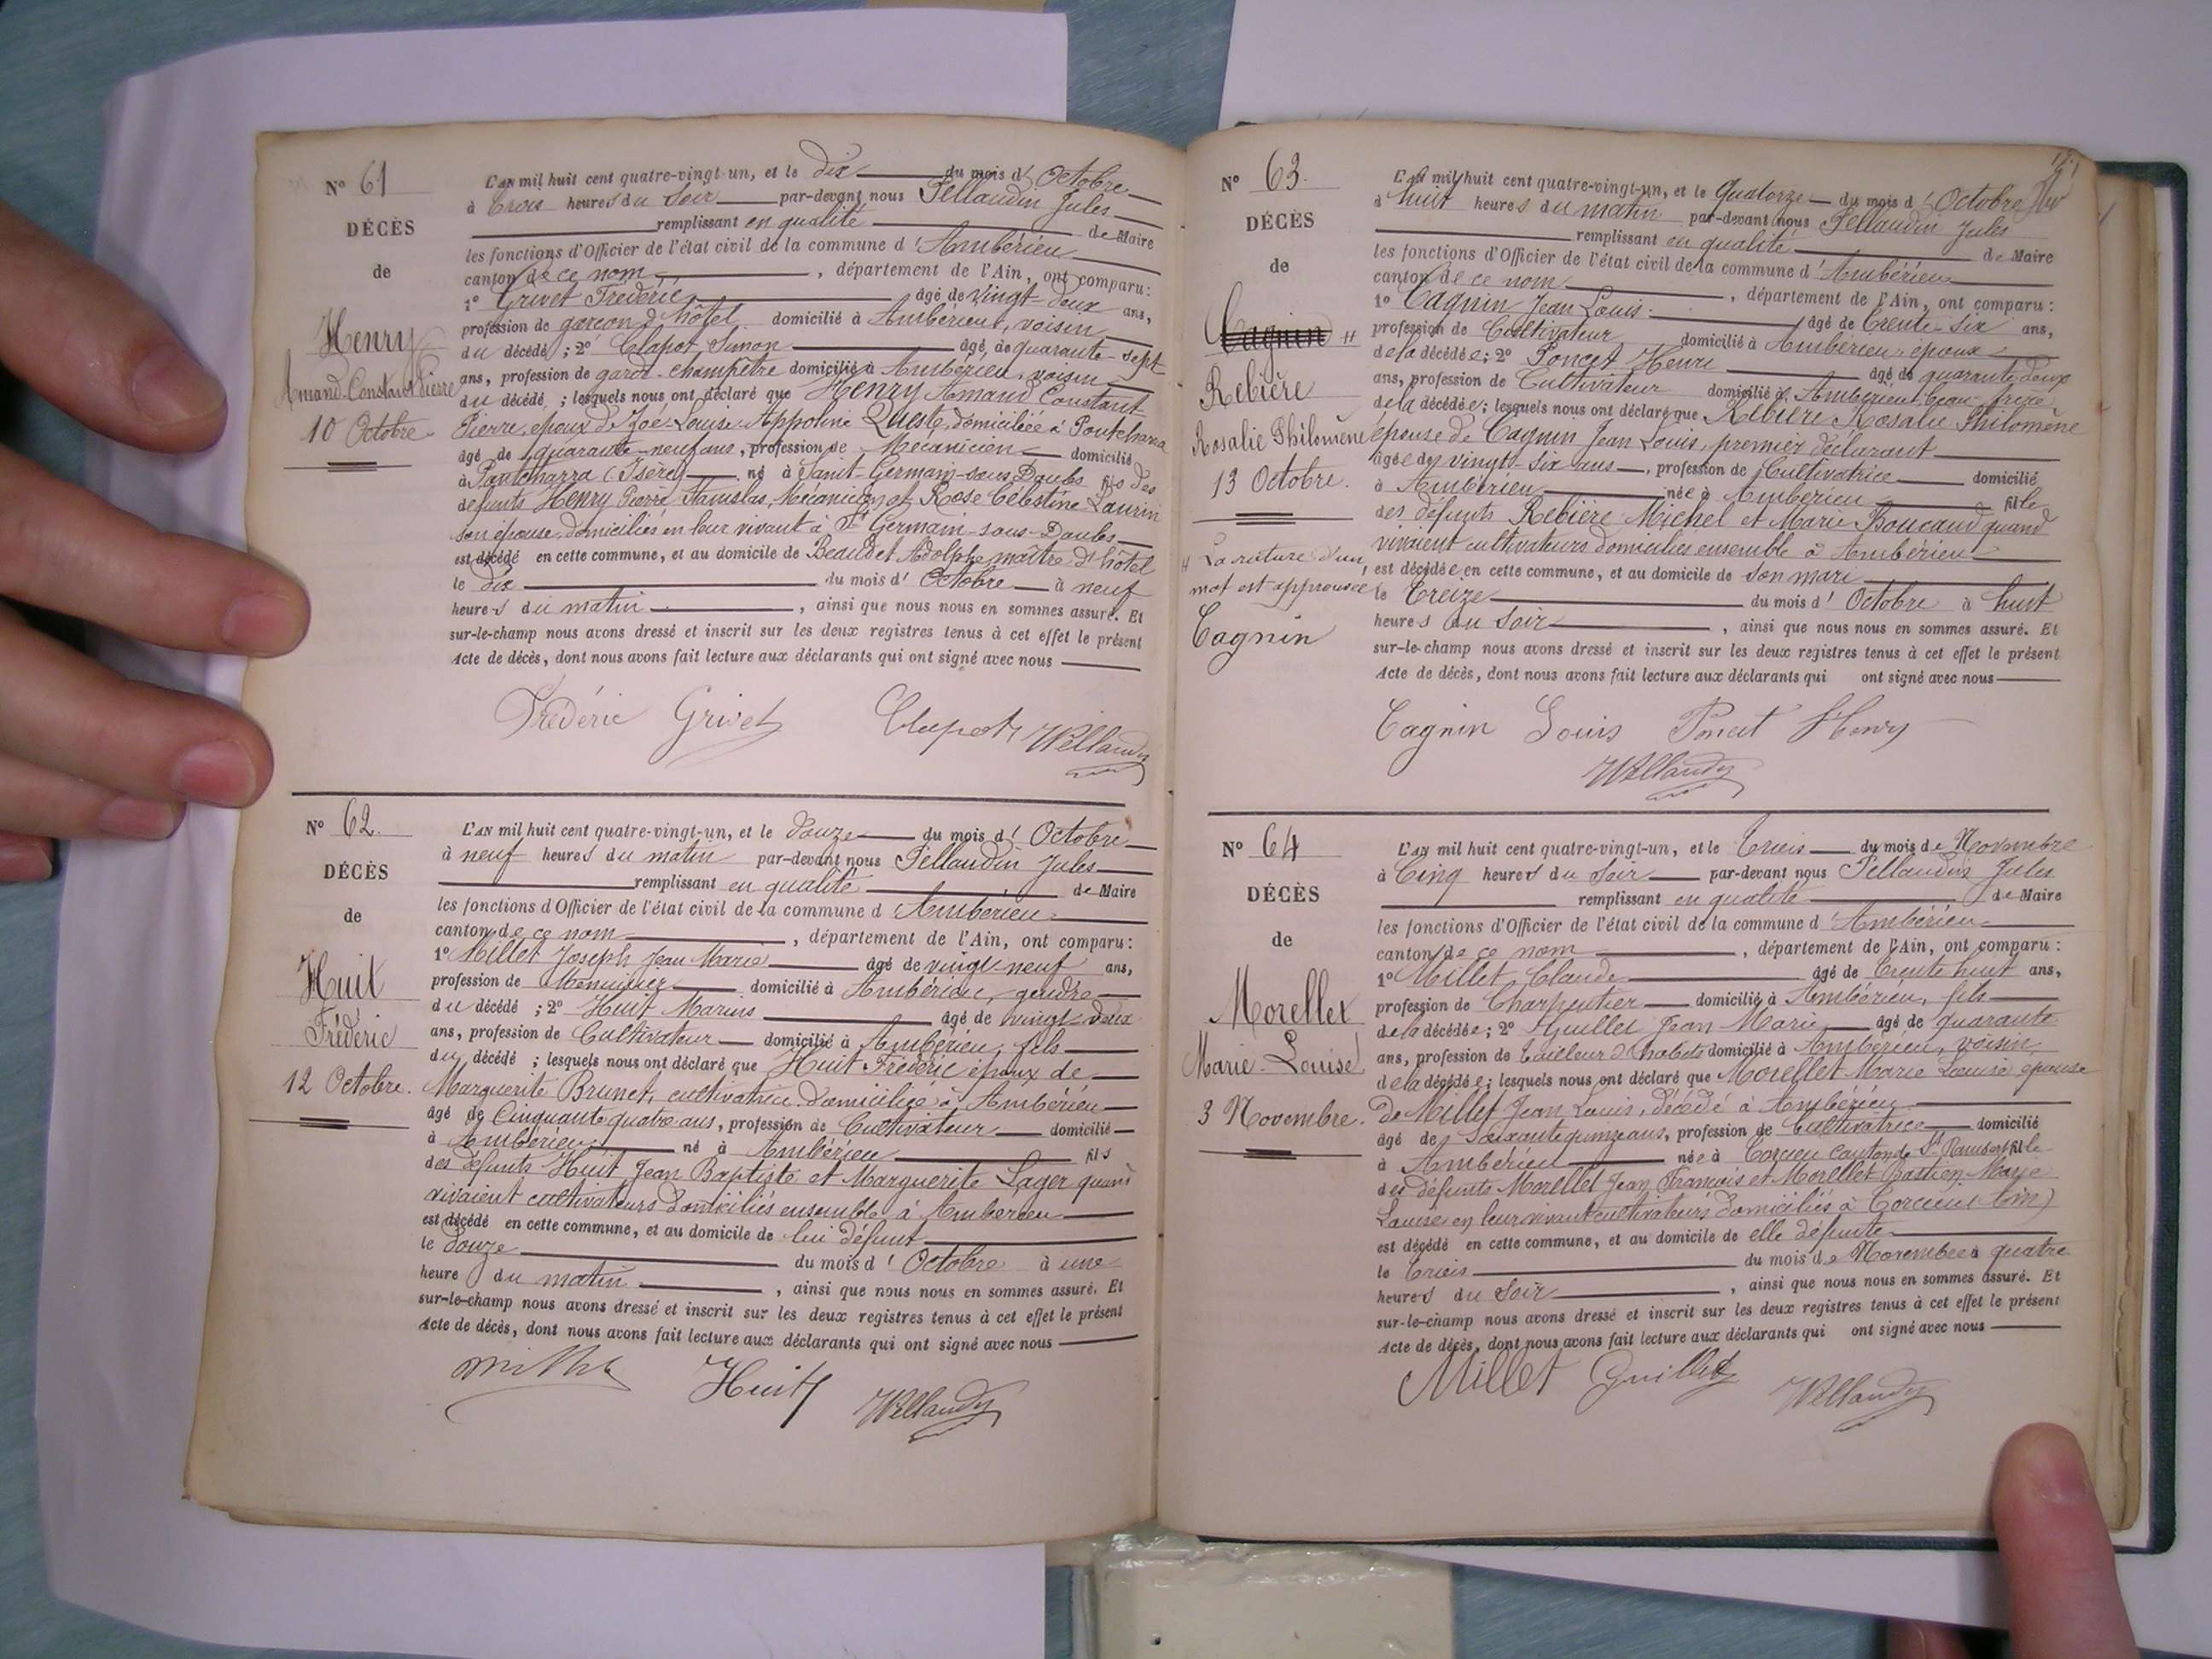 N° 61
DÉCÈS
de
Henry
Armand-Constant Pierre
10 Octobre
L'AN mil huit cent quatre-vingt-un, et le Dix du mois d' Octobre
à trois heures du soir par-devant nous Pellaudin Jules
remplissant en qualité de Maire
les fonctions d'Officier de l'état civil de la commune d' Ambérieu
canton de ce nom , département de l'Ain, ont comparu:
1° Grivet Frédéric âgé de vingt-deux ans,
profession de garçon d'hôtel domicilié à Ambérieu, voisin
du décédé ; 2° Clapot Simon âgé de quarante-sept
ans, profession de garde-champêtre domicilié à Ambérieu, voisin
du décédé ; lesquels nous ont déclaré que Henry Armand Constant
Pierre, époux de Zoé-Louise-Appoline Queste, domiciliée à Pontcharra
âgé de quarante-neuf ans, profession de Mécanicien domicilié
à Pontcharra (Isère) né à Saint-Germain-sous-Doubs fils des
défunts Henry Pierre Stanislas, Mécanicien et Rose Célestine Laurin
son épouse, domiciliés en leur vivant à St Germain-sous-Doubs
est décédé en cette commune, et au domicile de Beaudet Adolphe, maître d'hôtel
le dix du mois d' Octobre à neuf
heures du matin , ainsi que nous nous en sommes assuré. Et
sur-le-champ nous avons dressé et inscrit sur les deux registres tenus à cet effet le présent
Acte de décès, dont nous avons fait lecture aux déclarants qui ont signé avec nous
Frédéric Grivet Clapot Pellaudin
N° 62.
DÉCÈS
de
Huit
Frédéric
12 Octobre.
L'AN mil huit cent quatre-vingt-un, et le douze du mois d' Octobre
à neuf heures du matin par-devant nous Pellaudin Jules
remplissant en qualité de Maire
les fonctions d'Officier de l'état civil de la commune d Ambérieu
canton de ce nom , département de l'Ain, ont comparu:
1° Millet Joseph Jean Marie âgé de vingt-neuf ans,
profession de Menuisier domicilié à Ambérieu, gendre
du décédé ; 2° Huit Marius âgé de vingt-deux
ans, profession de Cultivateur domicilié à Ambérieu, fils
du décédé ; lesquels nous ont déclaré que Huit Frédéric époux de
Marguerite Brunet, cultivatrice domiciliée à Ambérieu
âgé de Cinquante quatre ans, profession de Cultivateur domicilié
à Ambérieu né à Ambérieu fils
des défunts Huit Jean Baptiste et Marguerite Lager quand
vivaient cultivateurs domiciliés ensemble à Ambérieu
est décédé en cette commune, et au domicile de lui défunt
le douze du mois d' Octobre à une
heure du matin , ainsi que nous nous en sommes assuré. Et
sur-le-champ nous avons dressé et inscrit sur les deux registres tenus à cet effet le présent
Acte de décès, dont nous avons fait lecture aux déclarants qui ont signé avec nous
Millet Huit Pellaudin
N° 63.
DÉCÈS
de
Cagnin
Rebière
Rosalie Philomène
13 Octobre.
La rature d'un
mot est approuvée
Cagnin
L'AN mil huit cent quatre-vingt-un, et le Quatorze du mois d' Octobre
à huit heures du matin par-devant nous Pellaudin Jules
remplissant en qualité de Maire
les fonctions d'Officier de l'état civil de la commune d' Ambérieu
canton de ce nom , département de l'Ain, ont comparu:
1° Cagnin Jean Louis âgé de trente-six ans,
profession de Cultivateur domicilié à Ambérieu, époux
de la décédée; 2° Poncet Henri âgé de quarante deux
ans, profession de Cultivateur domicilié à Ambérieu, beau-frère
de la décédée; lesquels nous ont déclaré que Rebière Rosalie Philomène
épouse de Cagnin Jean Louis, premier déclarant
âgée de vingts-six ans, profession de Cultivatrice domicilié
à Ambérieu née à Ambérieu fille
des défunts Rebière Michel et Marie Boucaud quand
vivaient cultivateurs domiciliés ensemble à Ambérieu
est décédée en cette commune, et au domicile de son mari
le treize du mois d' Octobre à huit
heures du soir , ainsi que nous nous en sommes assuré. Et
sur-le-champ nous avons dressé et inscrit sur les deux registres tenus à cet effet le présent
Acte de décès, dont nous avons fait lecture aux déclarants qui ont signé avec nous
Cagnin Louis Poncet Henry
Pellaudin
N° 64
DÉCÈS
de
Morellet
Marie-Louise
3 Novembre.
L'AN mil huit cent quatre-vingt-un, et le trois du mois de Novembre
à Cinq heures du soir par-devant nous Pellaudin Jules
remplissant en qualité de Maire
les fonctions d'Officier de l'état civil de la commune d' Ambérieu
canton de ce nom , département de l'Ain, ont comparu:
1° Millet Claude âgé de trente huit ans,
profession de Charpentier domicilié à Ambérieu, fils
de la décédée; 2° Guillet Jean Marie âgé de quarante
ans, profession de tailleur d'habits domicilié à Ambérieu, voisin
de la décédée; lesquels nous ont déclaré que Morellet Marie Louise épouse
de Millet Jean Louis, décédé à Ambérieu
âgé de soixante quinze ans, profession de Cultivatrice domicilié
à Ambérieu née à Torcieu canton de St Rambert fille
des défunts Morellet Jean François et Morellet Marie
Louise en leur vivant cultivateurs domiciliés à Torcieu (Ain)
est décédé en cette commune, et au domicile de elle défunte
le trois du mois de Novembre à quatre
heures du soir , ainsi que nous nous en sommes assuré. Et
sur-le-champ nous avons dressé et inscrit sur les deux registres tenus à cet effet le présent
Acte de décès, dont nous avons fait lecture aux déclarants qui ont signé avec nous
Millet Guillet Pellaudin